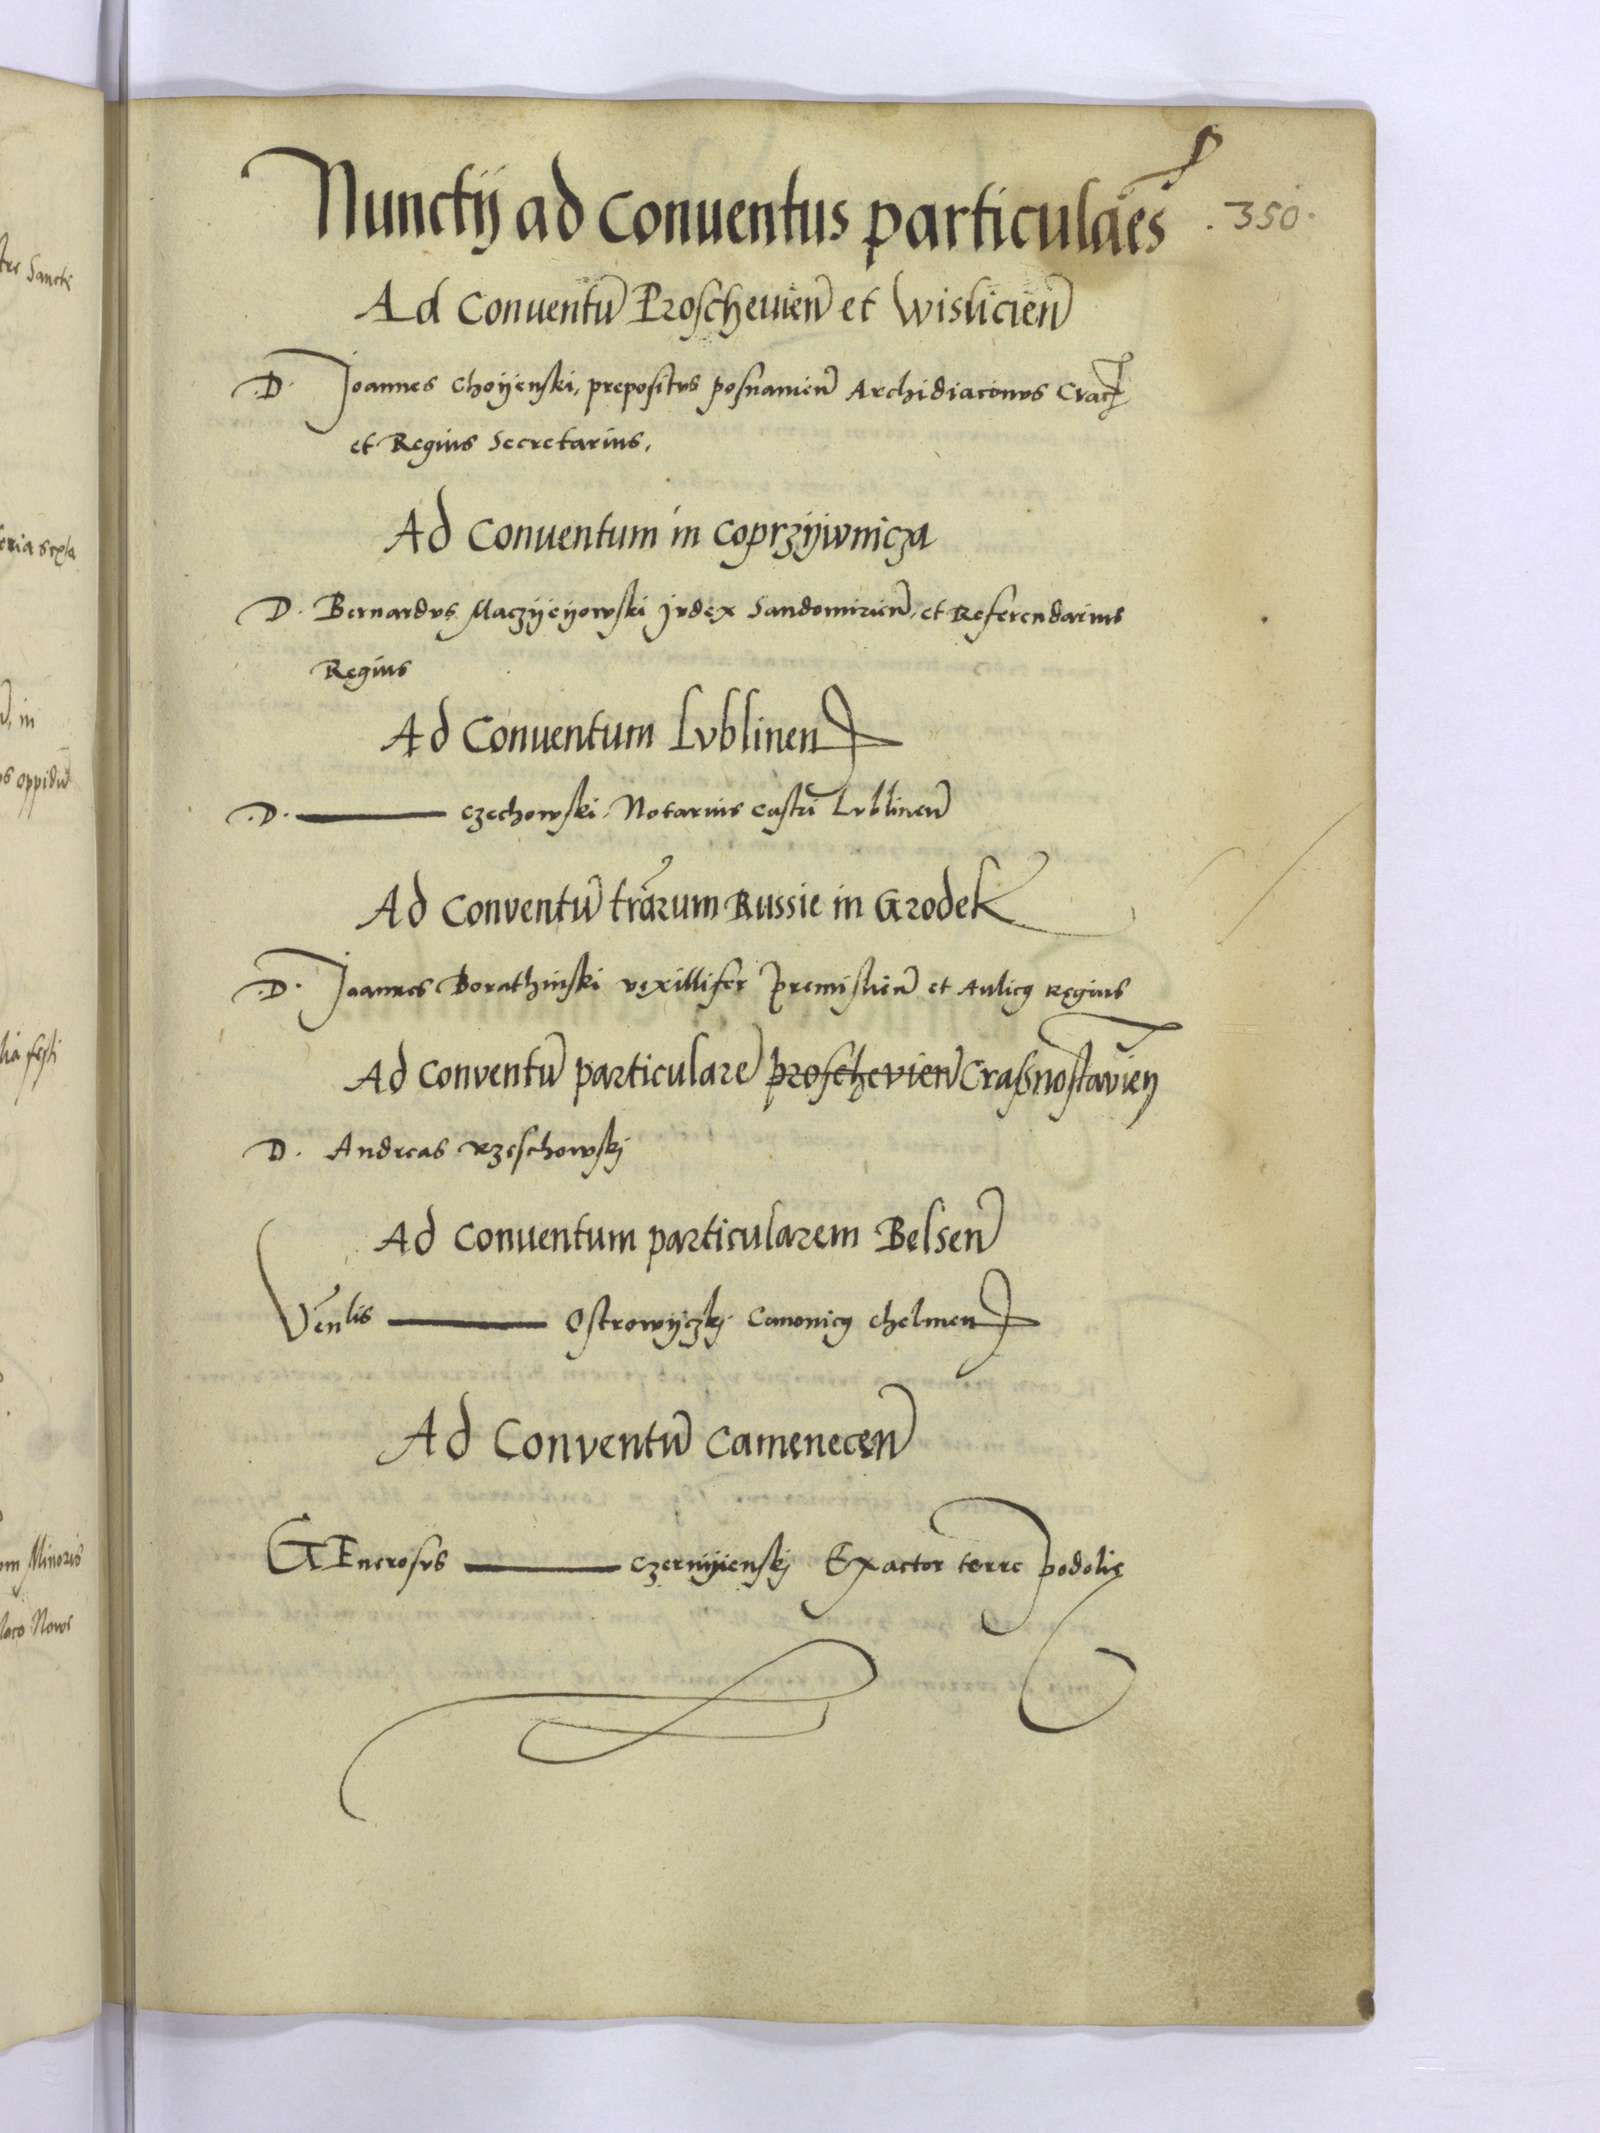 Nunctij ad Conuentus particulaes
.350.
Ad Conuentũ Proscheuien̄ et Wislicien̄
D. Joannes Choijenski, prepositus posnanien̄ Archidiaconus Crac
et Regius Secretarius,
Ad Conuentum in Coprzijwnicza
D. Bernardus Maczijeijowski Judex Sandomirien̄, et Referendarius
Regius
Ad Conuentum Lublinen
.D. czechowski Notarius castri Lublinen̄
Ad Conventũ trarum Russie in Grodek
.D. Joannes Borathinski vexillifer Premislien̄ et Aulicꝰ Regius
Ad Conventũ particularē proschevien̄ Craßnostavien
D. Andreas Rzeschowskj
Ad Conuentum particularem Belsen̄
Venlis Ostrowijczkj Canonicꝰ Chelmen
Ad Conventũ Camenecen̄
GEnerosus czernijienskj Exactor terre podolię
tes Sancte
feria sexta
in
oppidũ
festi
Minoris
loco Nows